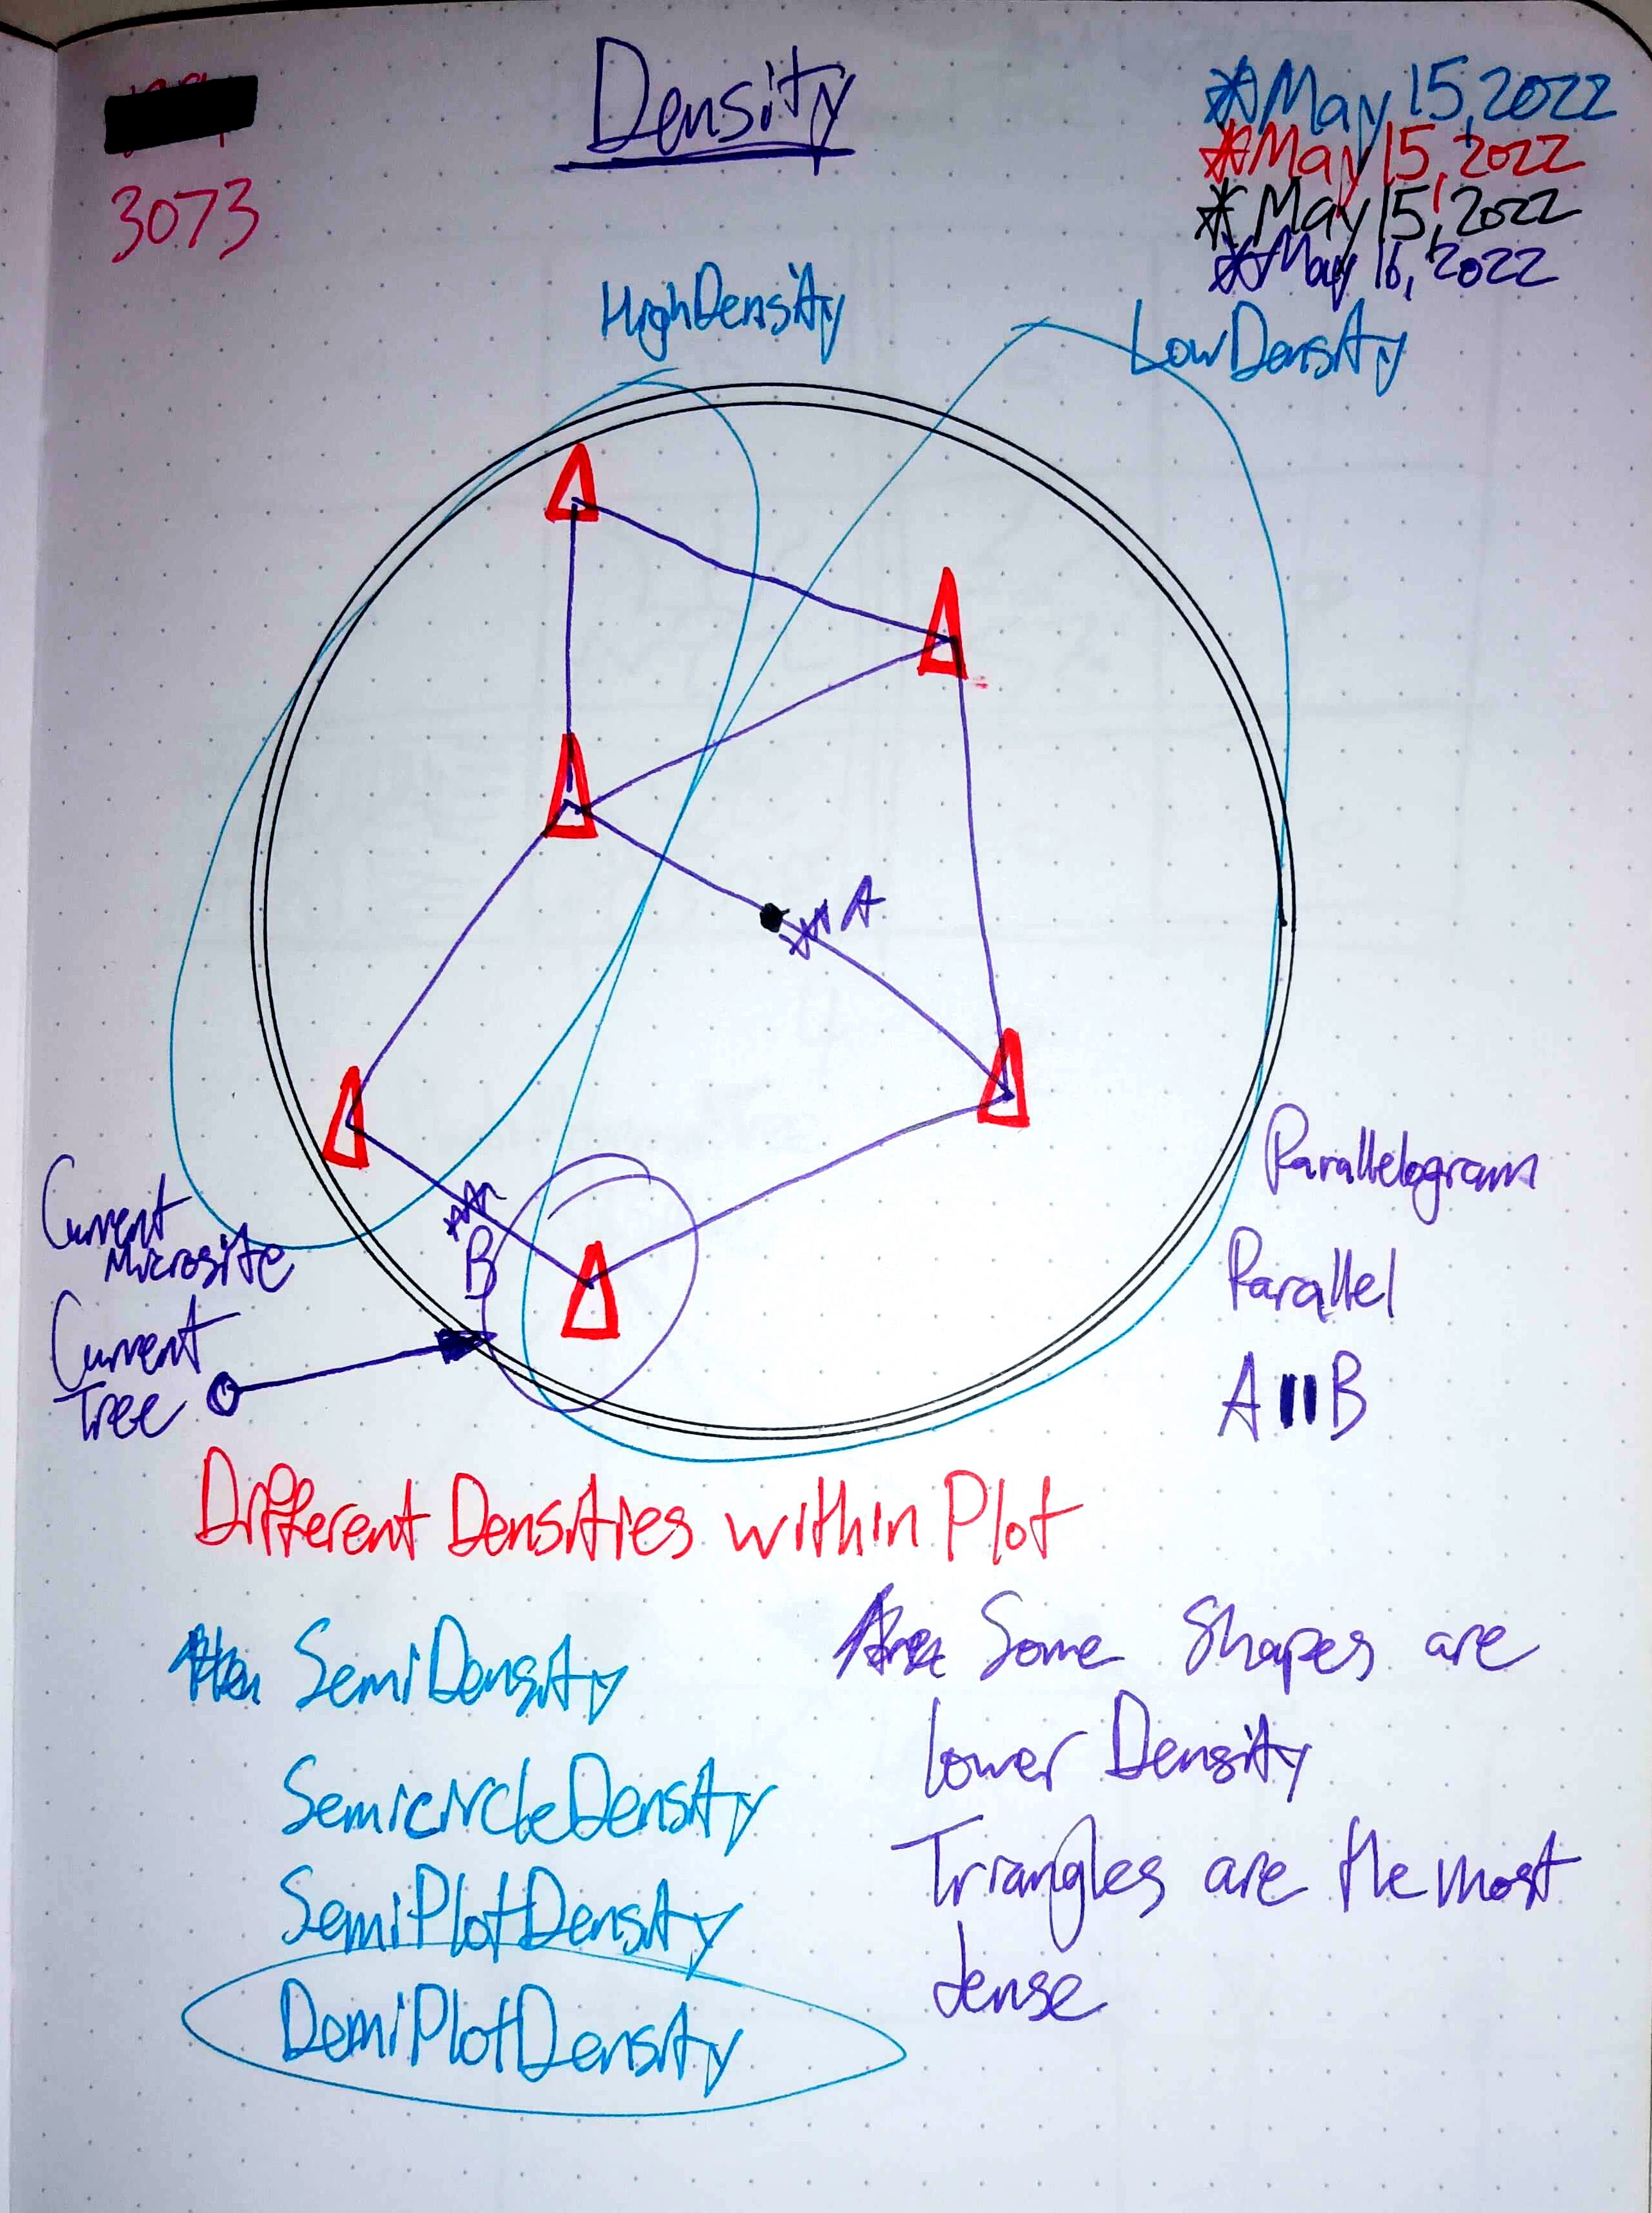 Density
3073
*May 15, 2022
*May 15, 2022
*May 15, 2022
*May 16, 2022
HighDensity
LowDensity
A
B
Current
Microsite
Current
Tree
Parallelogram
Parallel
A || B
Different Densities within Plot
SemiDensity
SemicircleDensity
SemiPlotDensity
DemiPlotDensity
Some Shapes are
lower Density
Triangles are the most
dense